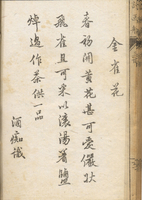 金雀花
春初開黃花甚可愛儼狀
飛雀且可采以滾湯著鹽
焯過作茶供一品
酒痴識